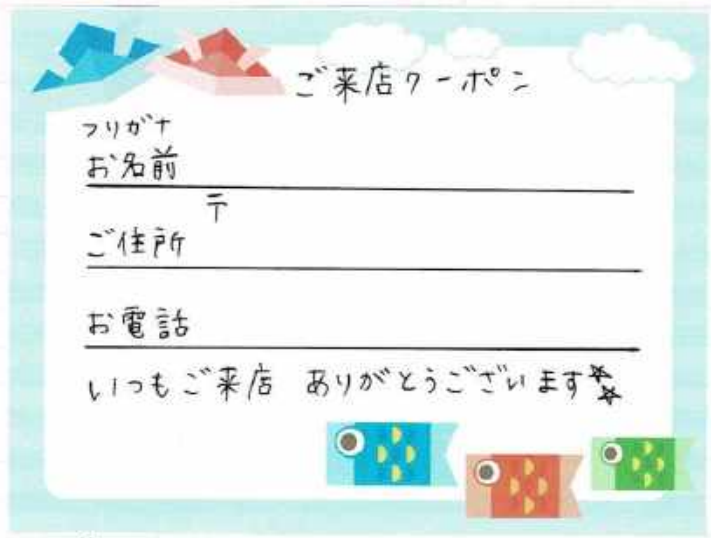 ご来店クーポン
フリガナ
お名前
〒
ご住所
お電話
いつもご来店 ありがとうございます☆☆